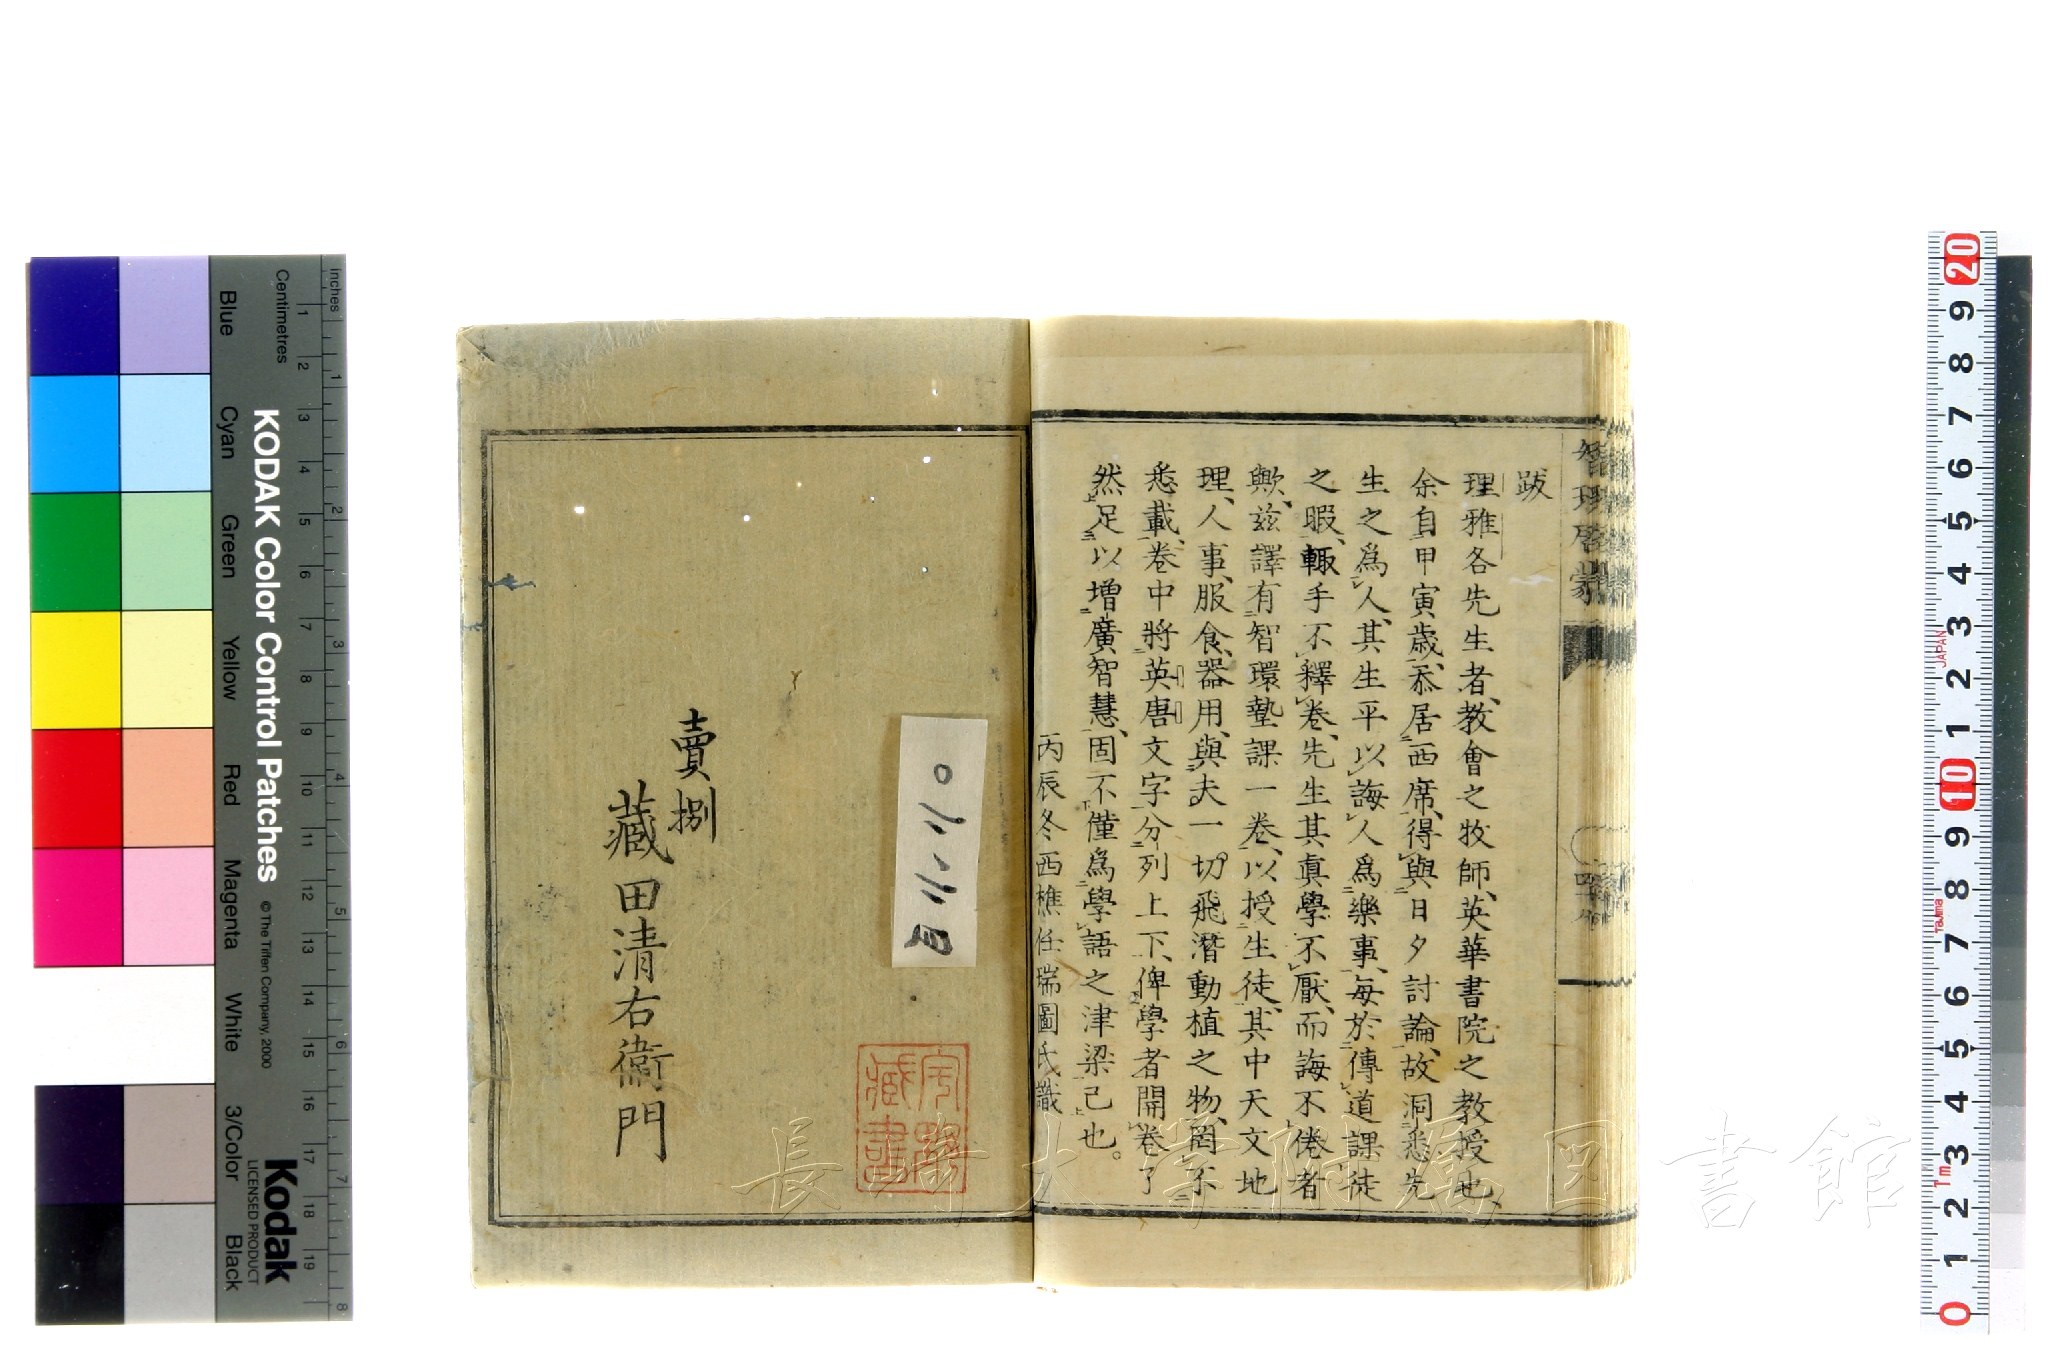 跋
理雅各先生者、教會之牧師、英華書院之教授也、
余自甲寅歲、忝居西席、得與日夕討論、故洞悉先
生之爲人、其生平以誨人爲樂事、每於傳道課徒
之暇、輙手不釋卷、先生其眞學不厭、而誨不倦者
歟、茲譯有智環塾課一卷、以授生徒、其中天文地
理、人事、服食、器用、與夫一切飛潛動植之物、罔不
悉載、卷中將英唐文字分列上下、俾學者開卷了
然足以增廣智慧、固不僅爲學語之津梁己也。
丙辰冬西樵任瑞圖氏識
賣捌
藏田清右衞門
藏書
長崎大学附属図書館
KODAK Color Control Patches
© The Tiffen Company, 2000
Kodak
LICENSED PRODUCT
inches
Centimetres
Blue
Cyan
Green
Yellow
Red
Magenta
White
3/Color
Black
1 2 3 4 5 6 7 8
1 2 3 4 5 6 7 8 9 10 11 12 13 14 15 16 17 18 19
20 9 8 7 6 5 4 3 2 1 10 9 8 7 6 5 4 3 2 1 0
JAPAN
Tajima